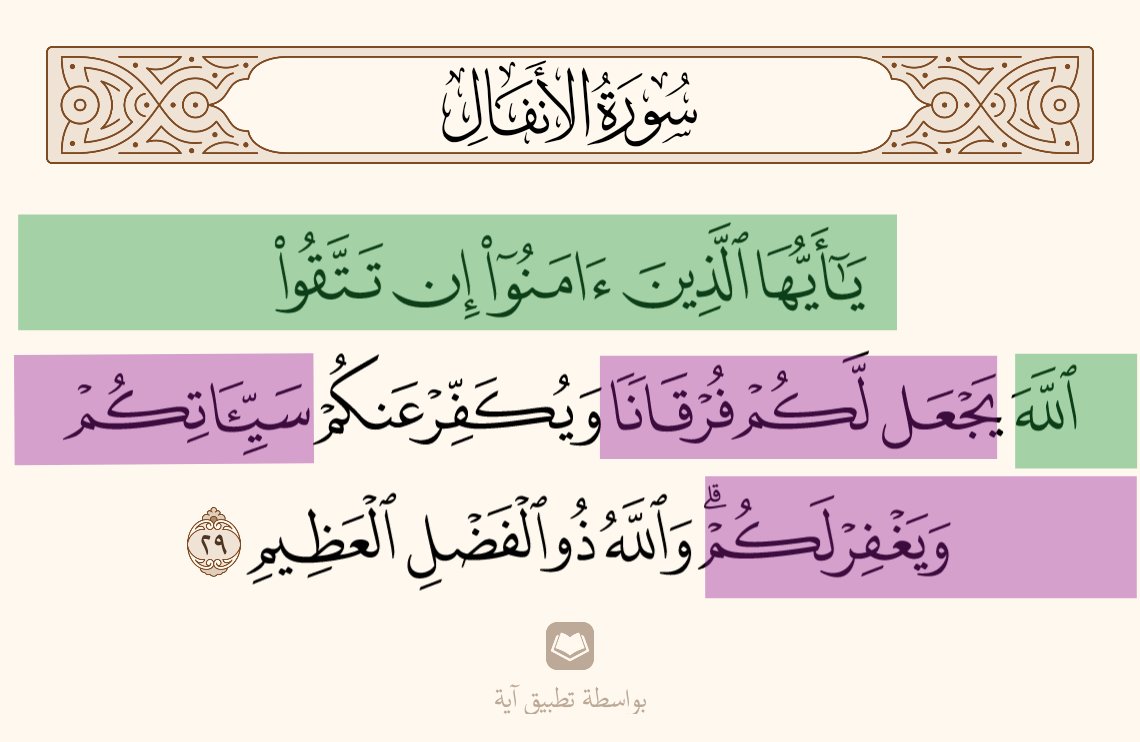 سُورَةُ الأَنفَالِ
يَٰٓأَيُّهَا ٱلَّذِينَ ءَامَنُوٓا۟ إِن تَتَّقُوا۟
ٱللَّهَ يَجْعَل لَّكُمْ فُرْقَانًا وَيُكَفِّرْ عَنكُمْ سَيِّـَٔاتِكُمْ
وَيَغْفِرْ لَكُمْ ۗ وَٱللَّهُ ذُو ٱلْفَضْلِ ٱلْعَظِيمِ ٢٩
بواسطة تطبيق آية